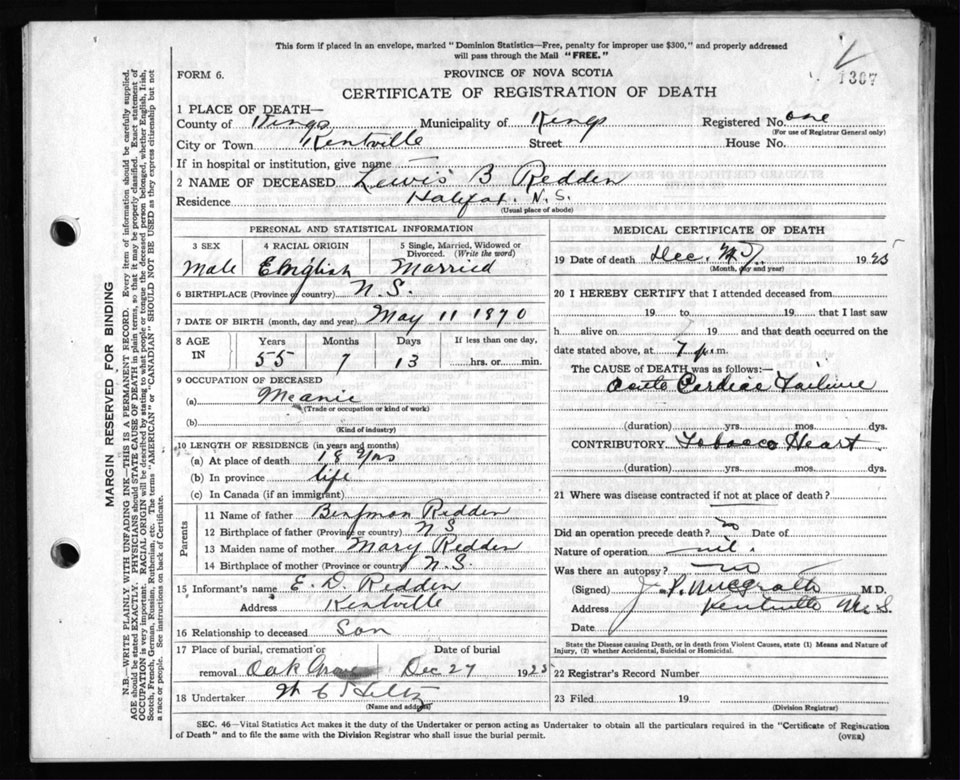 This form if placed in an envelope, marked "Dominion Statistics—Free, penalty for improper use $300," and properly addressed
will pass through the Mail "FREE."
FORM 6.
PROVINCE OF NOVA SCOTIA
1307
CERTIFICATE OF REGISTRATION OF DEATH
1 PLACE OF DEATH—
County of Kings Municipality of Kings Registered No. one
(For use of Registrar General only)
City or Town Kentville Street House No.
If in hospital or institution, give name —
2 NAME OF DECEASED Lewis B Redden
Residence Halifax. N.S.
(Usual place of abode)
PERSONAL AND STATISTICAL INFORMATION
3 SEX 4 RACIAL ORIGIN 5 Single, Married, Widowed or
Divorced. (Write the word)
Male English Married
6 BIRTHPLACE (Province or country) N.S.
7 DATE OF BIRTH (month, day and year) May 11 1870
8 AGE IN Years Months Days If less than one day,
55 7 13 hrs. or min.
9 OCCUPATION OF DECEASED
(a) Meanic
(Trade or occupation or kind of work)
(b)
(Kind of industry)
10 LENGTH OF RESIDENCE (in years and months)
(a) At place of death 18 yrs
(b) In province life
(c) In Canada (if an immigrant)
Parents
11 Name of father Benjman Redden
12 Birthplace of father (Province or country) N S
13 Maiden name of mother Mary Redden
14 Birthplace of mother (Province or country) N.S.
15 Informant's name E. D. Redden
Address Kentville
16 Relationship to deceased Son
17 Place of burial, cremation or Date of burial
removal Oak Grove Dec 27 1925
18 Undertaker
(Name and address)
MEDICAL CERTIFICATE OF DEATH
19 Date of death Dec. 1925
(Month, day and year)
20 I HEREBY CERTIFY that I attended deceased from
19 to 19 that I last saw
h alive on 19 and that death occurred on
date stated above, at 7 p.m.
The CAUSE of DEATH was as follows:—
Acute Cardiac Failure
(duration) yrs. mos. dys.
CONTRIBUTORY Tobacco Heart
(duration) yrs. mos. dys.
21 Where was disease contracted if not at place of death?
Did an operation precede death? no Date of
Nature of operation nil.
Was there an autopsy? no
(Signed) J. P. McGrath M.D.
Address Kentville N.S.
Date
State the Disease causing Death, or in death from Violent Causes, state (1) Means and Nature of
Injury, (2) whether Accidental, Suicidal or Homicidal.
22 Registrar's Record Number
23 Filed 19
(Division Registrar)
SEC. 46—Vital Statistics Act makes it the duty of the Undertaker or person acting as Undertaker to obtain all the particulars required in the "Certificate of Registration
of Death" and to file the same with the Division Registrar who shall issue the burial permit. (OVER)
MARGIN RESERVED FOR BINDING
N.B.—WRITE PLAINLY WITH UNFADING INK—THIS IS A PERMANENT RECORD. Every item of information should be carefully supplied.
AGE should be stated EXACTLY. PHYSICIANS should STATE CAUSE OF DEATH in plain terms, so that it may be properly classified. Exact statement of
OCCUPATION is very important. RACIAL ORIGIN will be described by stating to what people or tongue the deceased person belonged, whether English, Irish,
Scotch, French, German, Russian, Ruthenian, etc. The terms "AMERICAN" or "CANADIAN" SHOULD NOT BE USED as they express citizenship but not
a race or people. See instructions on back of Certificate.